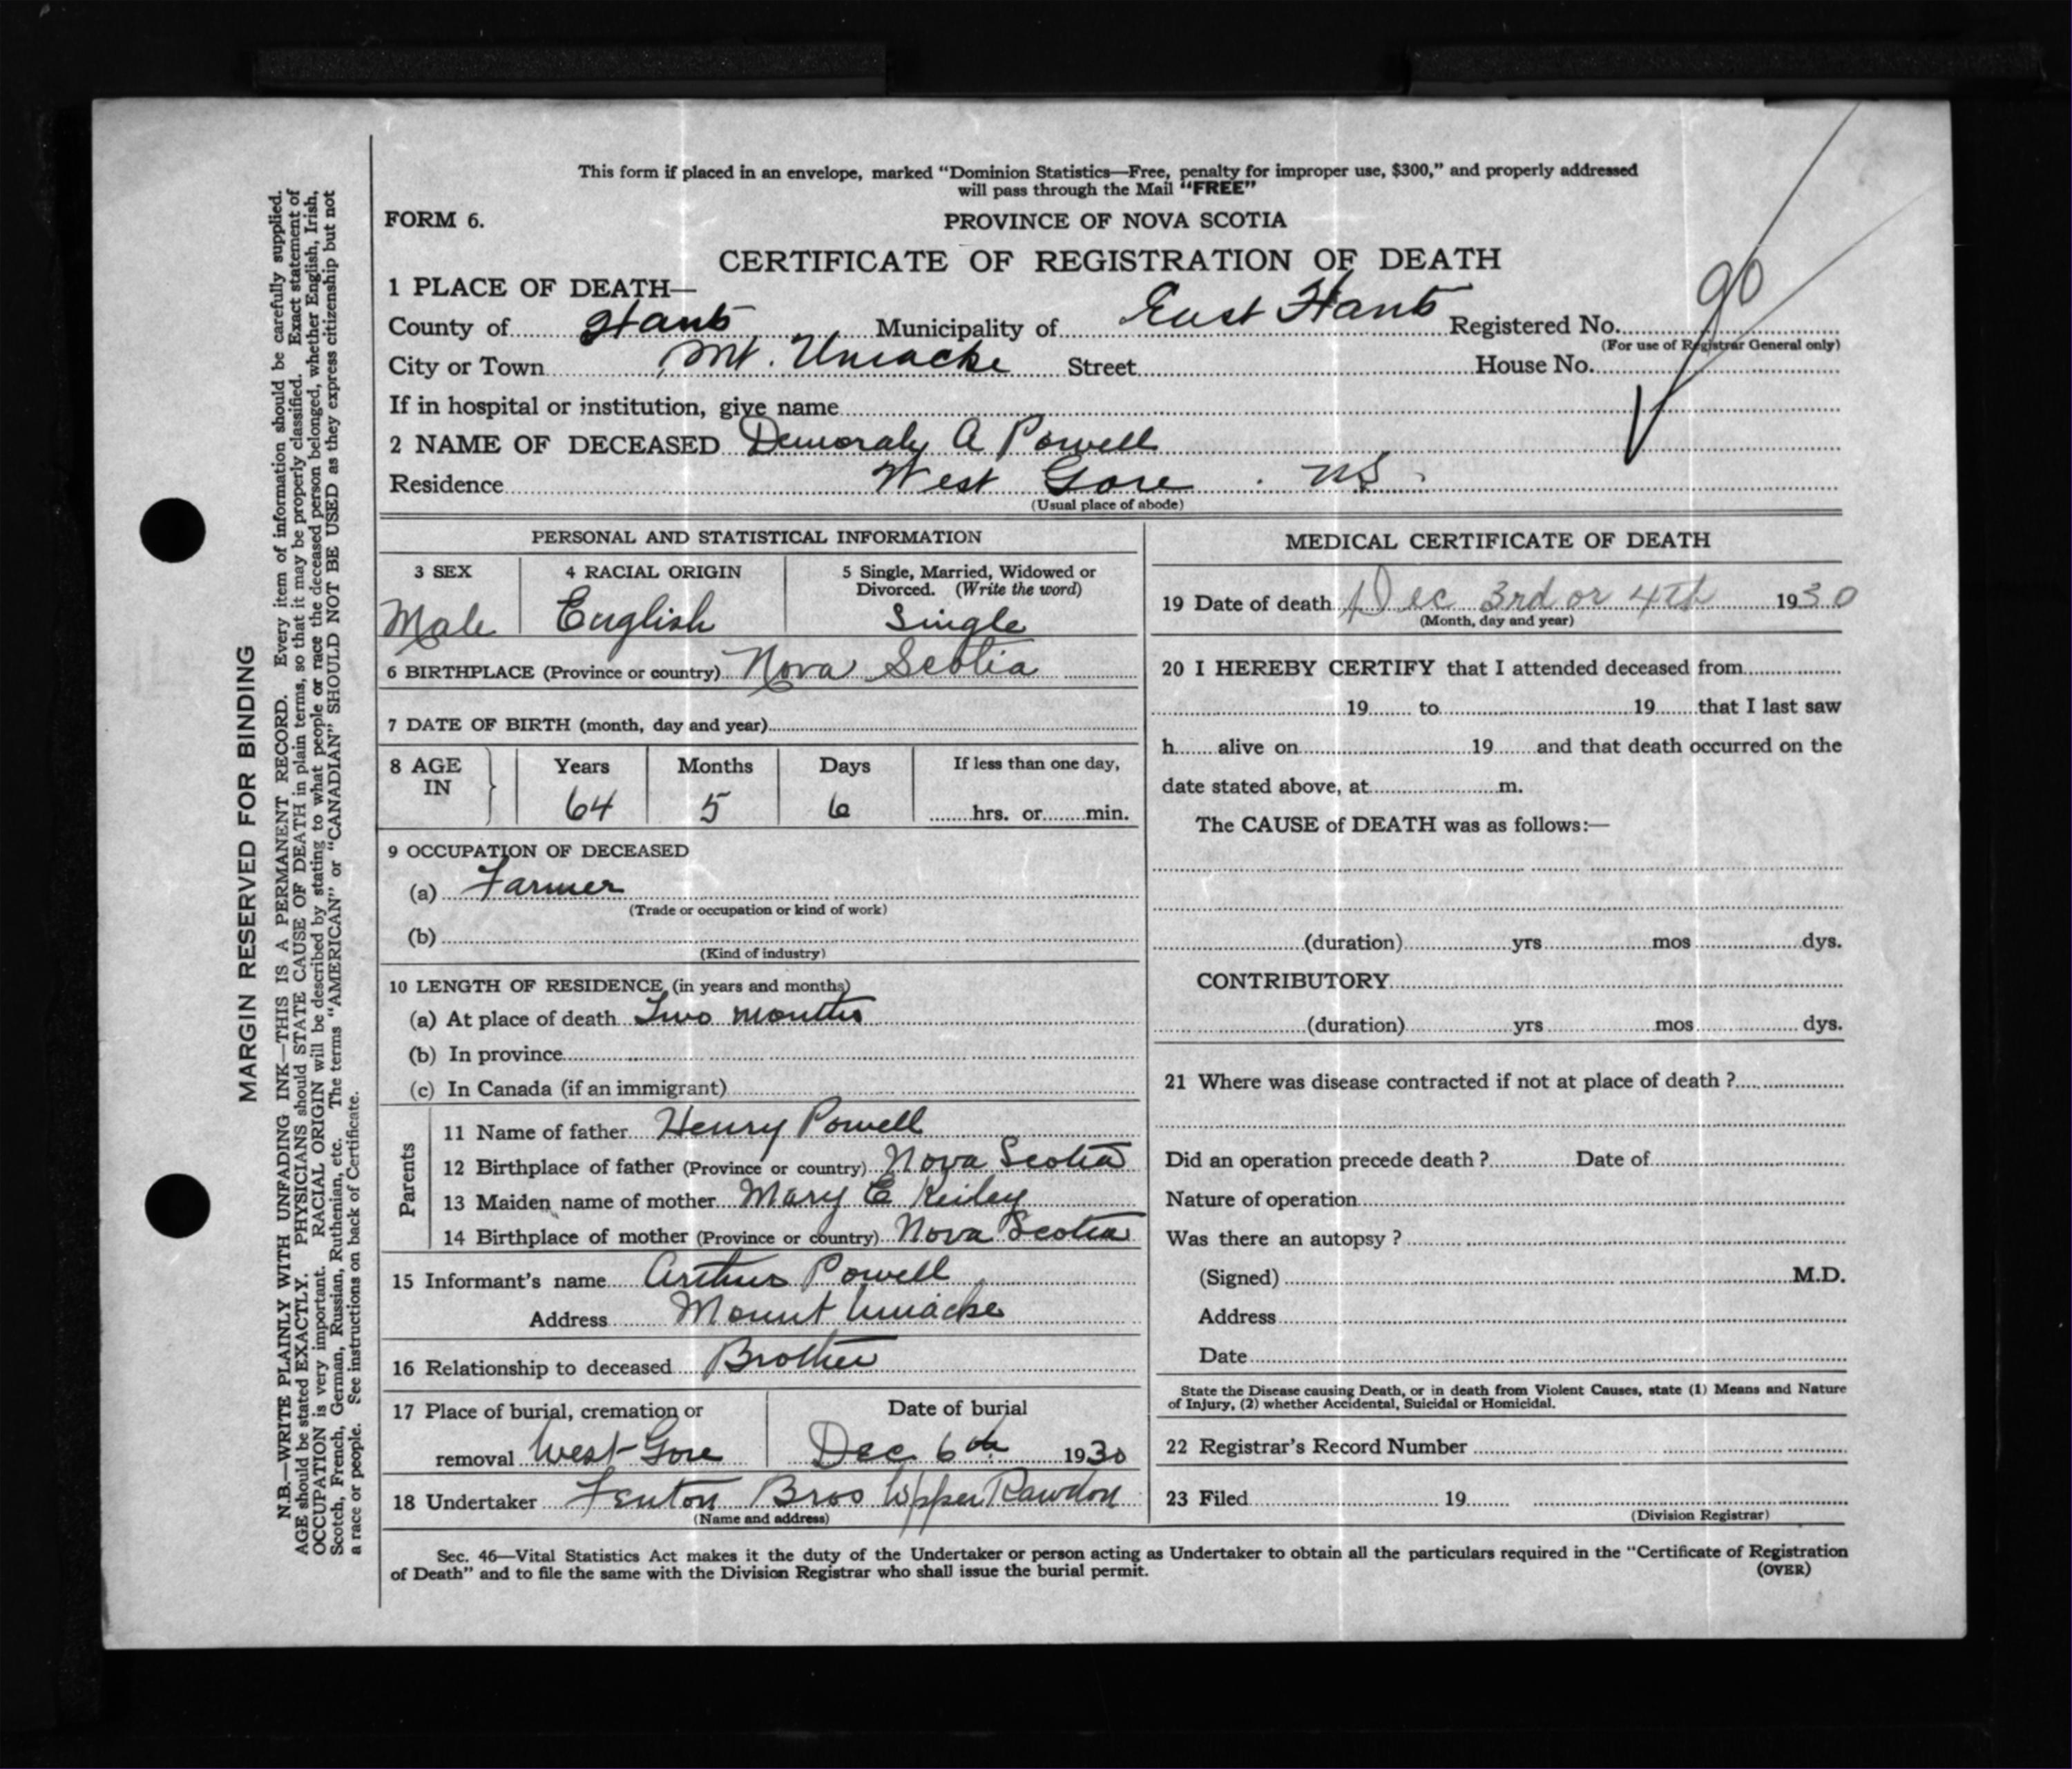 This form if placed in an envelope, marked "Dominion Statistics—Free, penalty for improper use, $300," and properly addressed
will pass through the Mail "FREE"
FORM 6.
PROVINCE OF NOVA SCOTIA
CERTIFICATE OF REGISTRATION OF DEATH
1 PLACE OF DEATH—
90
County of Hants Municipality of East Hants Registered No.
(For use of Registrar General only)
City or Town Mt. Uniacke Street House No.
If in hospital or institution, give name
2 NAME OF DECEASED A Powell
Residence West Gore NS
(Usual place of abode)
PERSONAL AND STATISTICAL INFORMATION
3 SEX 4 RACIAL ORIGIN 5 Single, Married, Widowed or
Divorced. (Write the word)
Male English Single
6 BIRTHPLACE (Province or country) Nova Scotia
7 DATE OF BIRTH (month, day and year)
8 AGE IN Years Months Days If less than one day,
64 5 6 hrs. or min.
9 OCCUPATION OF DECEASED
(a) Farmer
(Trade or occupation or kind of work)
(b)
(Kind of industry)
10 LENGTH OF RESIDENCE (in years and months)
(a) At place of death Two months
(b) In province
(c) In Canada (if an immigrant)
Parents
11 Name of father Henry Powell
12 Birthplace of father (Province or country) Nova Scotia
13 Maiden name of mother Mary E Keiley
14 Birthplace of mother (Province or country) Nova Scotia
15 Informant's name Arthur Powell
Address Mount Uniacke
16 Relationship to deceased Brother
17 Place of burial, cremation or Date of burial
removal West Gore Dec 6th 1930
18 Undertaker Fenton Bros Upper Rawdon
(Name and address)
MEDICAL CERTIFICATE OF DEATH
19 Date of death Dec 3rd or 4th 1930
(Month, day and year)
20 I HEREBY CERTIFY that I attended deceased from
19 to 19 that I last saw
h alive on 19 and that death occurred on the
date stated above, at m.
The CAUSE of DEATH was as follows:—
(duration) yrs mos dys.
CONTRIBUTORY
(duration) yrs mos dys.
21 Where was disease contracted if not at place of death ?
Did an operation precede death ? Date of
Nature of operation
Was there an autopsy ?
(Signed) M.D.
Address
Date
State the Disease causing Death, or in death from Violent Causes, state (1) Means and Nature
of Injury, (2) whether Accidental, Suicidal or Homicidal.
22 Registrar's Record Number
23 Filed 19
(Division Registrar)
Sec. 46—Vital Statistics Act makes it the duty of the Undertaker or person acting as Undertaker to obtain all the particulars required in the "Certificate of Registration
of Death" and to file the same with the Division Registrar who shall issue the burial permit.
(OVER)
MARGIN RESERVED FOR BINDING
N.B.—WRITE PLAINLY WITH UNFADING INK—THIS IS A PERMANENT RECORD. Every item of information should be carefully supplied.
AGE should be stated EXACTLY. PHYSICIANS should STATE CAUSE OF DEATH in plain terms, so that it may be properly classified. Exact statement of
OCCUPATION is very important. RACIAL ORIGIN will be described by stating to what people or race the deceased person belonged, whether English, Irish,
Scotch, French, German, Russian, Ruthenian, etc. The terms "AMERICAN" or "CANADIAN" SHOULD NOT BE USED as they express citizenship but not
a race or people. See instructions on back of Certificate.